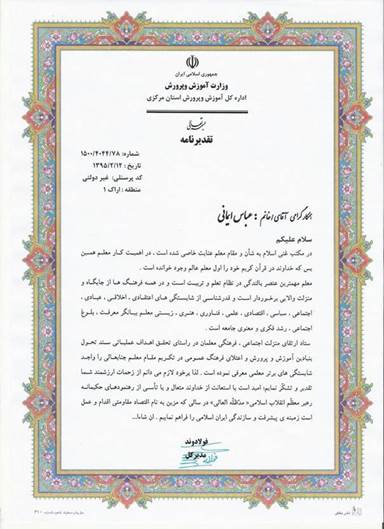 جمهوری اسلامی ایران
وزارت آموزش و پرورش
اداره کل آموزش و پرورش استان مرکزی
تقدیرنامه
شماره: ۱۵۰۰/۴۰۴۴/۷۸
تاریخ: ۱۳۹۵/۲/۱۲
کد پرسنلی: غیر دولتی
منطقه: اراک ۱
همکار گرامی آقای/خانم: عباس ایمانی
سلام علیکم
در مکتب غنی اسلام به شأن و مقام معلم عنایت خاصی شده است. در اهمیت کار معلم همین
بس که خداوند در قرآن کریم خود را اول معلم عالم وجود خوانده است.
معلم مهمترین عنصر بالندگی در نظام تعلم و تربیت است و در همه فرهنگ ها از جایگاه و
منزلت والایی برخوردار است و قدرشناسی از شایستگی های اعتقادی، اخلاقی، عبادی،
اجتماعی، سیاسی، اقتصادی، علمی، فناوری، هنری، زیستی معلم بیانگر معرفت، بلوغ
اجتماعی، رشد فکری و معنوی جامعه است.
ستاد ارتقای منزلت اجتماعی، فرهنگی معلمان در راستای تحقق اهداف عملیاتی سند تحول
بنیادین آموزش و پرورش و اعتلای فرهنگ عمومی در تکریم مقام معلم جنابعالی را واجد
شایستگی های برتر معلمی معرفی نموده است. لذا برخود لازم می دانم از زحمات ارزشمند شما
تقدیر و تشکّر نمایم. امید است با استعانت از خداوند متعال و با تأسی از رهنمودهای حکیمانه
رهبر معظّم انقلاب اسلامی «مدّظلّه العالی» در سالی که مزین به نام اقتصاد مقاومتی اقدام و عمل
است زمینه ی پیشرفت و سازندگی ایران اسلامی را فراهم نماییم. ان شاءا...
فولادوند
مدیرکل